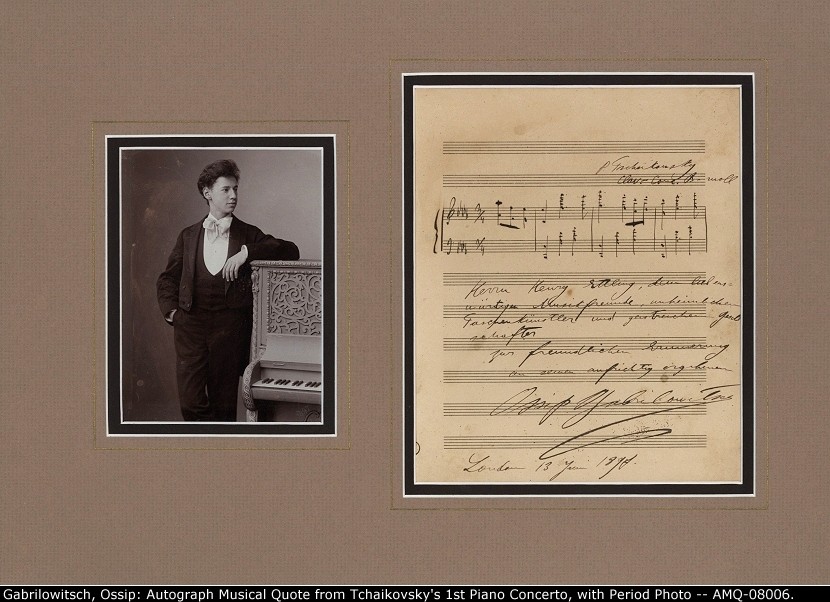 P Tschaikowsky
Clav. Conc. B-moll
Herrn Henry Ettling, dem liebens-
würdigen Musikfreunde, unheimlichen
Taschenkünstler und geistreichen Gesell-
schafter
zur freundlichen Erinnerung
an seinen aufrichtig ergebenen
Ossip Gabrilowitsch
London 13 Juni
Gabrilowitsch, Ossip: Autograph Musical Quote from Tchaikovsky's 1st Piano Concerto, with Period Photo -- AMQ-08006.